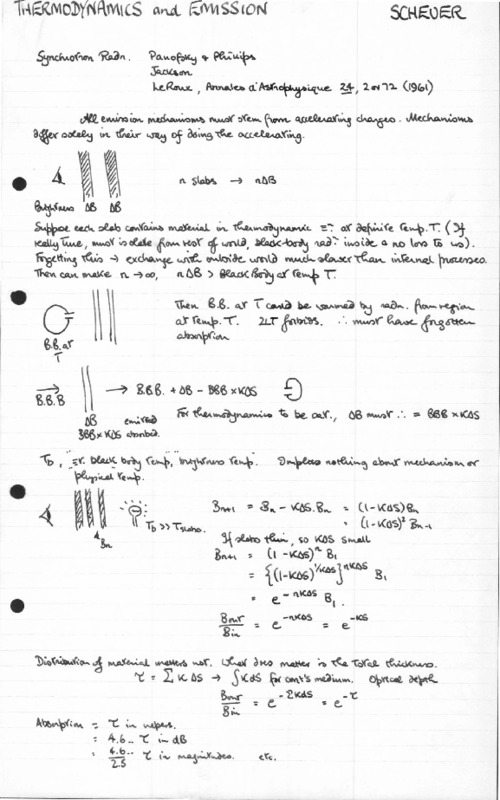 THERMODYNAMICS and EMISSION SCHEUER
Synchrotron Radn. Panofsky & Philips
Jackson
LeRoux, Annales d'Astrophysique 24, 2 or 72 (1961)
All emission mechanisms must stem from accelerating charges. Mechanisms
differ solely in their way of doing the accelerating.
n slabs → nΔB
Brightness ΔB ΔB
Suppose each slab contains material in thermodynamic at definite temp. T. (If
really true, must isolate from rest of world, black-body radn inside & no loss to us).
Forgetting this → exchange with outside world much slower than internal processes.
Then can make n→∞, nΔB > Black Body at temp T.
Then B.B. at T could be warmed by radn. from region
at temp. T. 2LT forbids. ∴ must have forgotten
absorption
B.B. at
T
B.B.B → B.B.B. + ΔB - BBB × KΔS
ΔB emitted
BBB × KΔS absorbed.
For thermodynamics to be sat., ΔB must ∴ = BBB × KΔS
TD, black body temp," "brightness temp". Implies nothing about mechanism or
physical temp.
Bn
TD >> Tslabs.
Bn+1 = Bn - KΔS.Bn = (1-KΔS)Bn
= (1-KΔS)² Bn-1
If slabs thin, so KΔS small
Bn+1 = (1-KΔS)ⁿ B1
= {(1-KΔS)^1/KΔS}^nKΔS B1
= e^-nKΔS B1.
Bout/Bin = e^-nKΔS = e^-KS
Distribution of material matters not. What does matter is the total thickness.
τ = Σ K ΔS → ∫KdS for cont's medium. Optical depth
Bout/Bin = e^-ΣKdS = e^-τ
Absorption = τ in nepers.
= 4.6.. τ in dB
= 4.6../2.5 τ in magnitudes. etc.